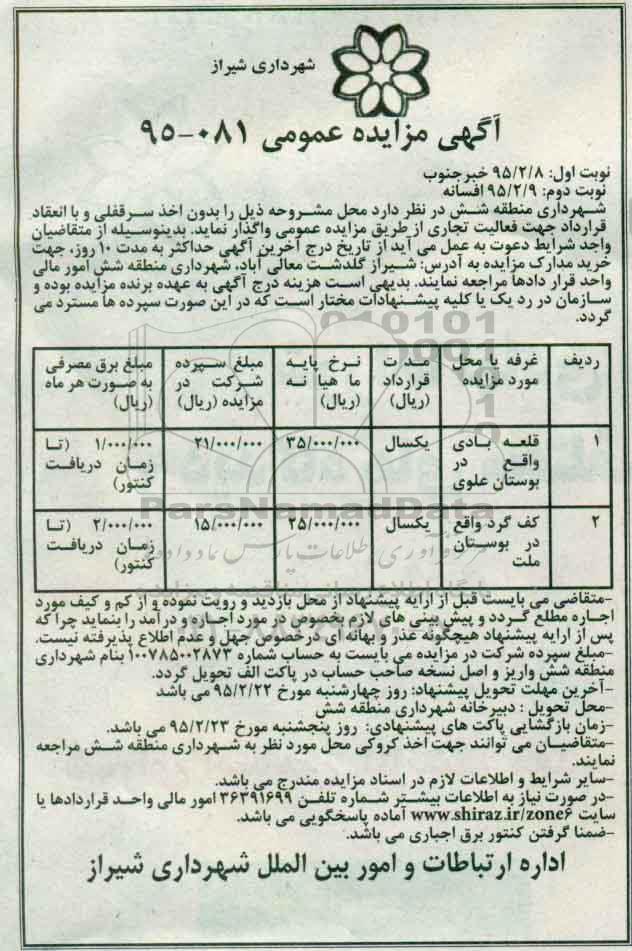 شهرداری شیراز
آگهی مزایده عمومی ۰۸۱-۹۵
نوبت اول: ۹۵/۲/۸ خبرجنوب
نوبت دوم: ۹۵/۲/۹ افسانه
شهرداری منطقه شش در نظر دارد محل مشروحه ذیل را بدون اخذ سرقفلی و با انعقاد
قرارداد جهت فعالیت تجاری از طریق مزایده عمومی واگذار نماید. بدینوسیله از متقاضیان
واجد شرایط دعوت به عمل می آید از تاریخ درج آخرین آگهی حداکثر به مدت ۱۰ روز، جهت
خرید مدارک مزایده به آدرس: شیراز گلدشت معالی آباد، شهرداری منطقه شش امور مالی
واحد قرار دادها مراجعه نمایند. بدیهی است هزینه درج آگهی به عهده برنده مزایده بوده و
سازمان در رد یک یا کلیه پیشنهادات مختار است که در این صورت سپرده ها مسترد می
گردد.
ردیف | غرفه یا محل مورد مزایده | مدت قرارداد (ریال) | نرخ پایه ما هیا نه (ریال) | مبلغ سپرده شرکت در مزایده (ریال) | مبلغ برق مصرفی به صورت هر ماه (ریال)
۱ | قلعه بادی واقع در بوستان علوی | یکسال | ۳۵/۰۰۰/۰۰۰ | ۲۱/۰۰۰/۰۰۰ | ۱/۰۰۰/۰۰۰ (تا زمان دریافت کنتور)
۲ | کف گرد واقع در بوستان ملت | یکسال | ۲۵/۰۰۰/۰۰۰ | ۱۵/۰۰۰/۰۰۰ | ۲/۰۰۰/۰۰۰ (تا زمان دریافت کنتور)
ParsNamadData
-متقاضی می بایست قبل از ارایه پیشنهاد از محل بازدید و رویت نموده و از کم و کیف مورد
اجاره مطلع گردد و پیش بینی های لازم بخصوص در مورد اجاره و درآمد را بنماید چرا که
پس از ارایه پیشنهاد هیچگونه عذر و بهانه ای درخصوص جهل و عدم اطلاع پذیرفته نیست.
-مبلغ سپرده شرکت در مزایده می بایست به حساب شماره ۱۰۰۷۸۵۰۰۲۸۷۳ بنام شهرداری
منطقه شش واریز و اصل نسخه صاحب حساب در پاکت الف تحویل گردد.
-آخرین مهلت تحویل پیشنهاد: روز چهارشنبه مورخ ۹۵/۲/۲۲ می باشد
-محل تحویل : دبیرخانه شهرداری منطقه شش
-زمان بازگشایی پاکت های پیشنهادی: روز پنجشنبه مورخ ۹۵/۲/۲۳ می باشد.
-متقاضیان می توانند جهت اخذ کروکی محل مورد نظر به شهرداری منطقه شش مراجعه
نمایند.
-سایر شرایط و اطلاعات لازم در اسناد مزایده مندرج می باشد.
-در صورت نیاز به اطلاعات بیشتر شماره تلفن ۳۶۳۹۱۶۹۹ امور مالی واحد قراردادها یا
سایت www.shiraz.ir/zone۶ آماده پاسخگویی می باشد.
-ضمنا گرفتن کنتور برق اجباری می باشد.
اداره ارتباطات و امور بین الملل شهرداری شیراز